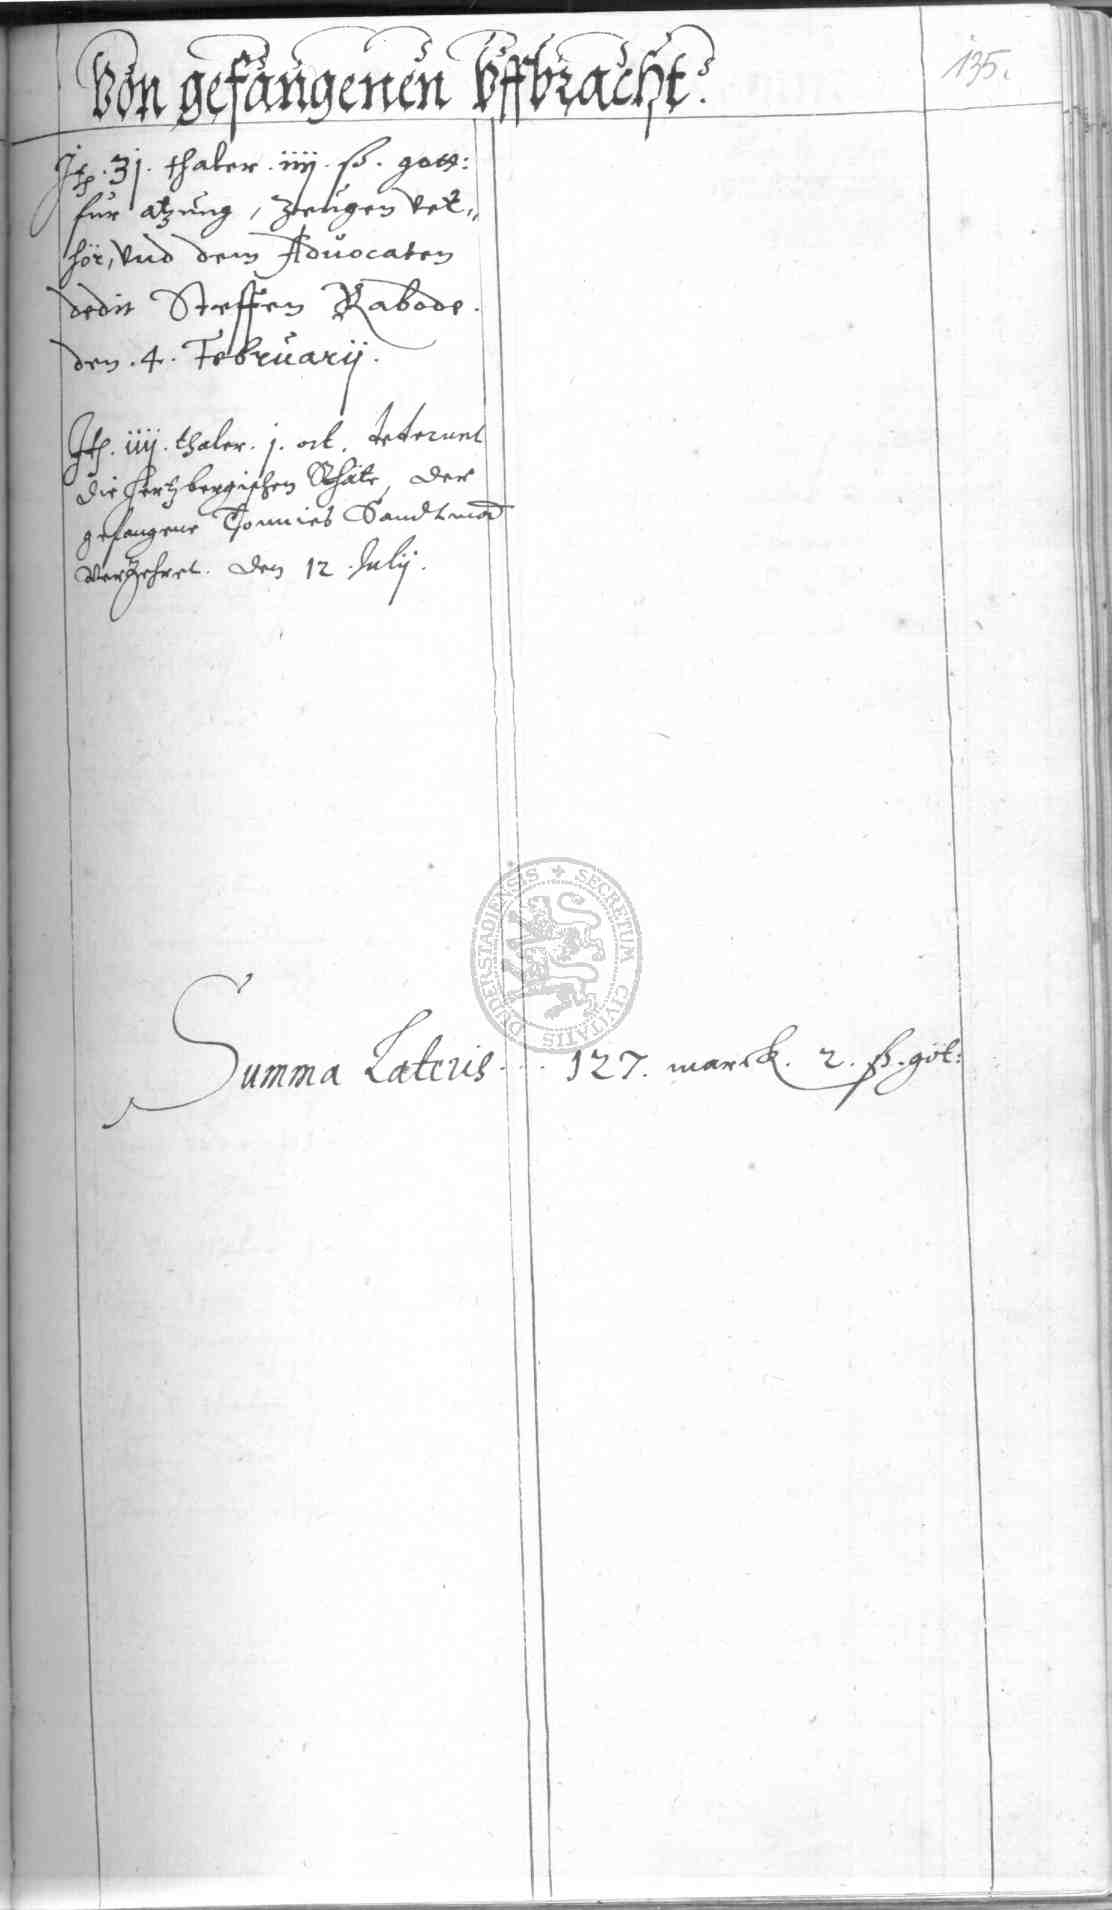 Von gefangenen Vffbracht.
135.
Itp. 31. thaler. iiij. ß. gott:
für atzung, zeugen ver„
hör, vnd dem Aduocaten
dedit Steffen Rabode.
den. 4. Februarij.
Itp. iiij. thaler. j. ort.
die Hertzbergischen Rhäte, der
gefangene Tonnies Sandt
verzehret. den 12. Julij.
SECRETUM CIVITATIS DUDERSTADIENSIS
Summa Lateris . . . 127. marck. 2. ß. göt: